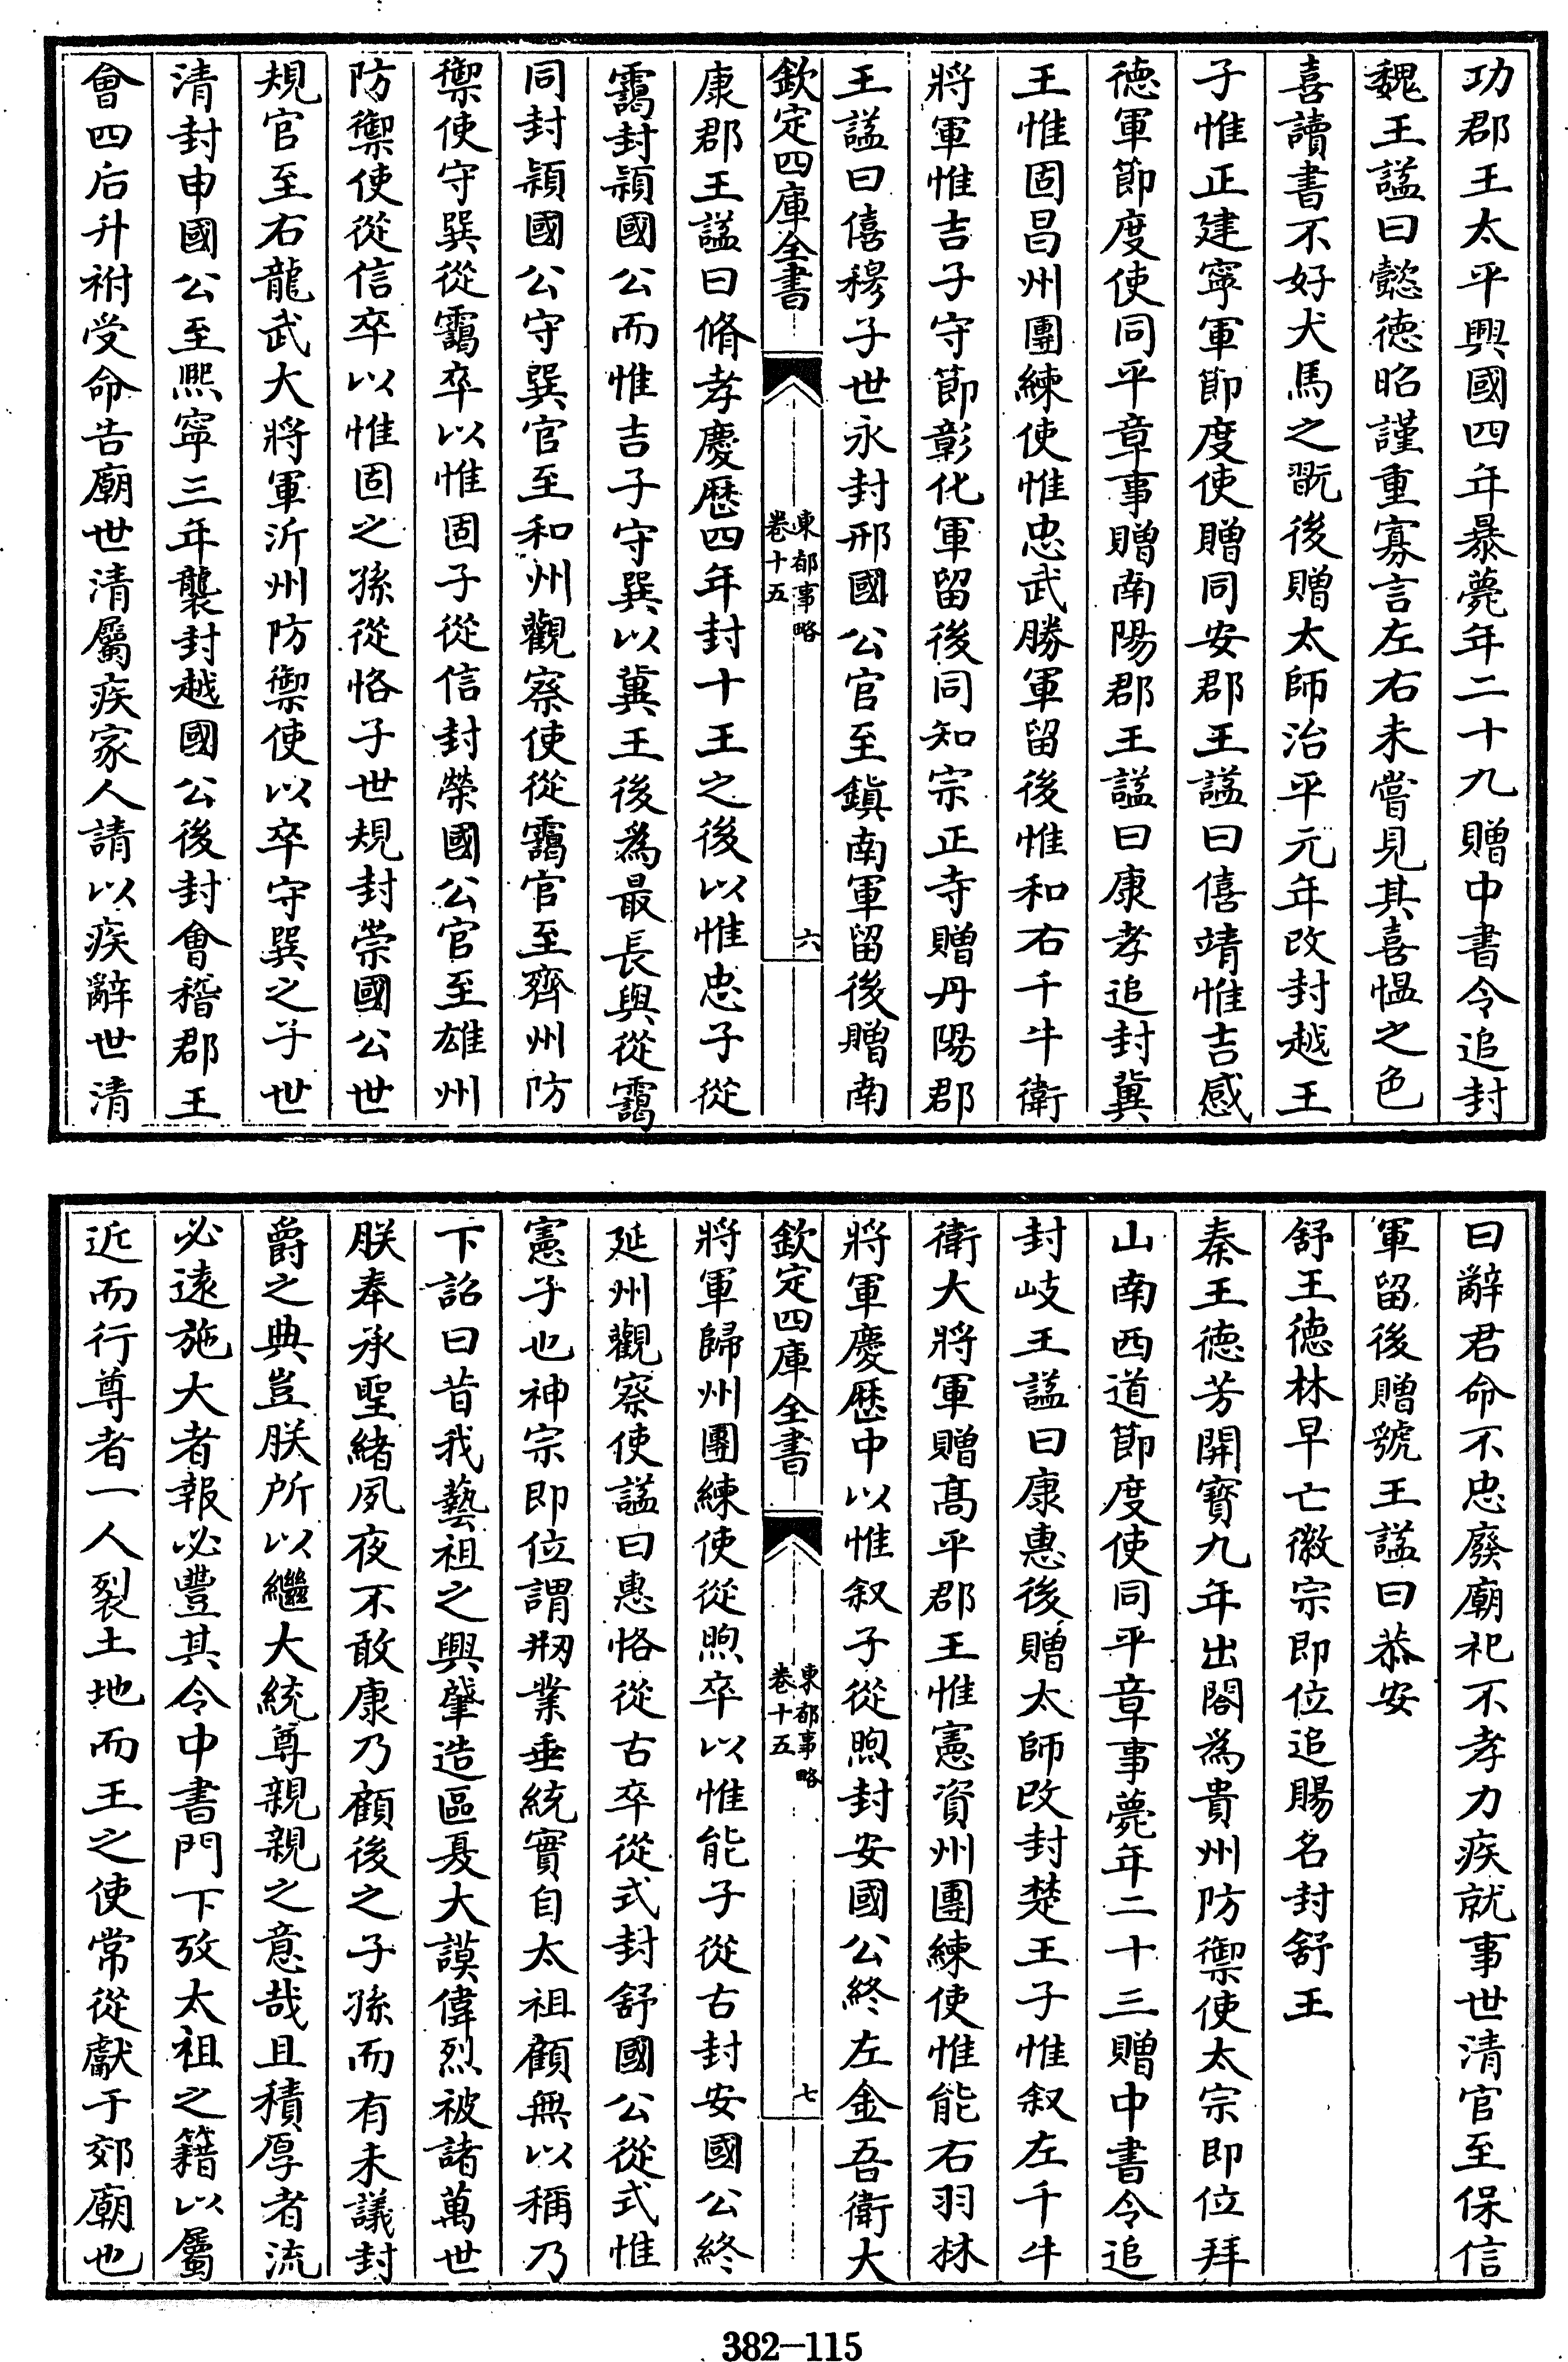 功郡王太平興國四年暴薨年二十九贈中書令追封
魏王諡曰懿徳昭謹重寡言左右未嘗見其喜愠之色
喜讀書不好犬馬之翫後贈太師治平元年改封越王
子惟正建寧軍節度使贈同安郡王諡曰僖靖惟吉感
徳軍節度使同平章事贈南陽郡王諡曰康孝追封冀
王惟固昌州團練使惟忠武勝軍留後惟和右千牛衛
將軍惟吉子守節彰化軍留後同知宗正寺贈丹陽郡
王諡曰僖穆子世永封邢國公官至鎮南軍留後贈南
欽定四庫全書
東都事略
卷十五
六
康郡王諡曰脩孝慶歴四年封十王之後以惟忠子從
靄封潁國公而惟吉子守巽以冀王後為最長與從靄
同封潁國公守巽官至和州觀察使從靄官至齊州防
禦使守巽從靄卒以惟固子從信封榮國公官至雄州
防禦使從信卒以惟固之孫從恪子世規封崇國公世
規官至右龍武大將軍沂州防禦使以卒守巽之子世
清封申國公至熙寧三年襲封越國公後封會稽郡王
會四后升祔受命告廟世清屬疾家人請以疾辭世清
曰辭君命不忠廢廟祀不孝力疾就事世清官至保信
軍留後贈虢王諡曰恭安
舒王徳林早亡徽宗即位追賜名封舒王
秦王徳芳開寳九年出閤為貴州防禦使太宗即位拜
山南西道節度使同平章事薨年二十三贈中書令追
封岐王諡曰康惠後贈太師改封楚王子惟叙左千牛
衛大將軍贈髙平郡王惟憲資州團練使惟能右羽林
將軍慶歴中以惟叙子從煦封安國公終左金吾衛大
欽定四庫全書
東都事略
卷十五
七
將軍歸州團練使從煦卒以惟能子從古封安國公終
延州觀察使諡曰惠恪從古卒從式封舒國公從式惟
憲子也神宗即位謂剏業垂統實自太祖顧無以稱乃
下詔曰昔我藝祖之興肈造區夏大謨偉烈被諸萬世
朕奉承聖緒夙夜不敢康乃顧後之子孫而有未議封
爵之典豈朕所以繼大統尊親親之意哉且積厚者流
必逺施大者報必豐其令中書門下攷太祖之籍以屬
近而行尊者一人裂土地而王之使常從獻于郊廟也
382-115